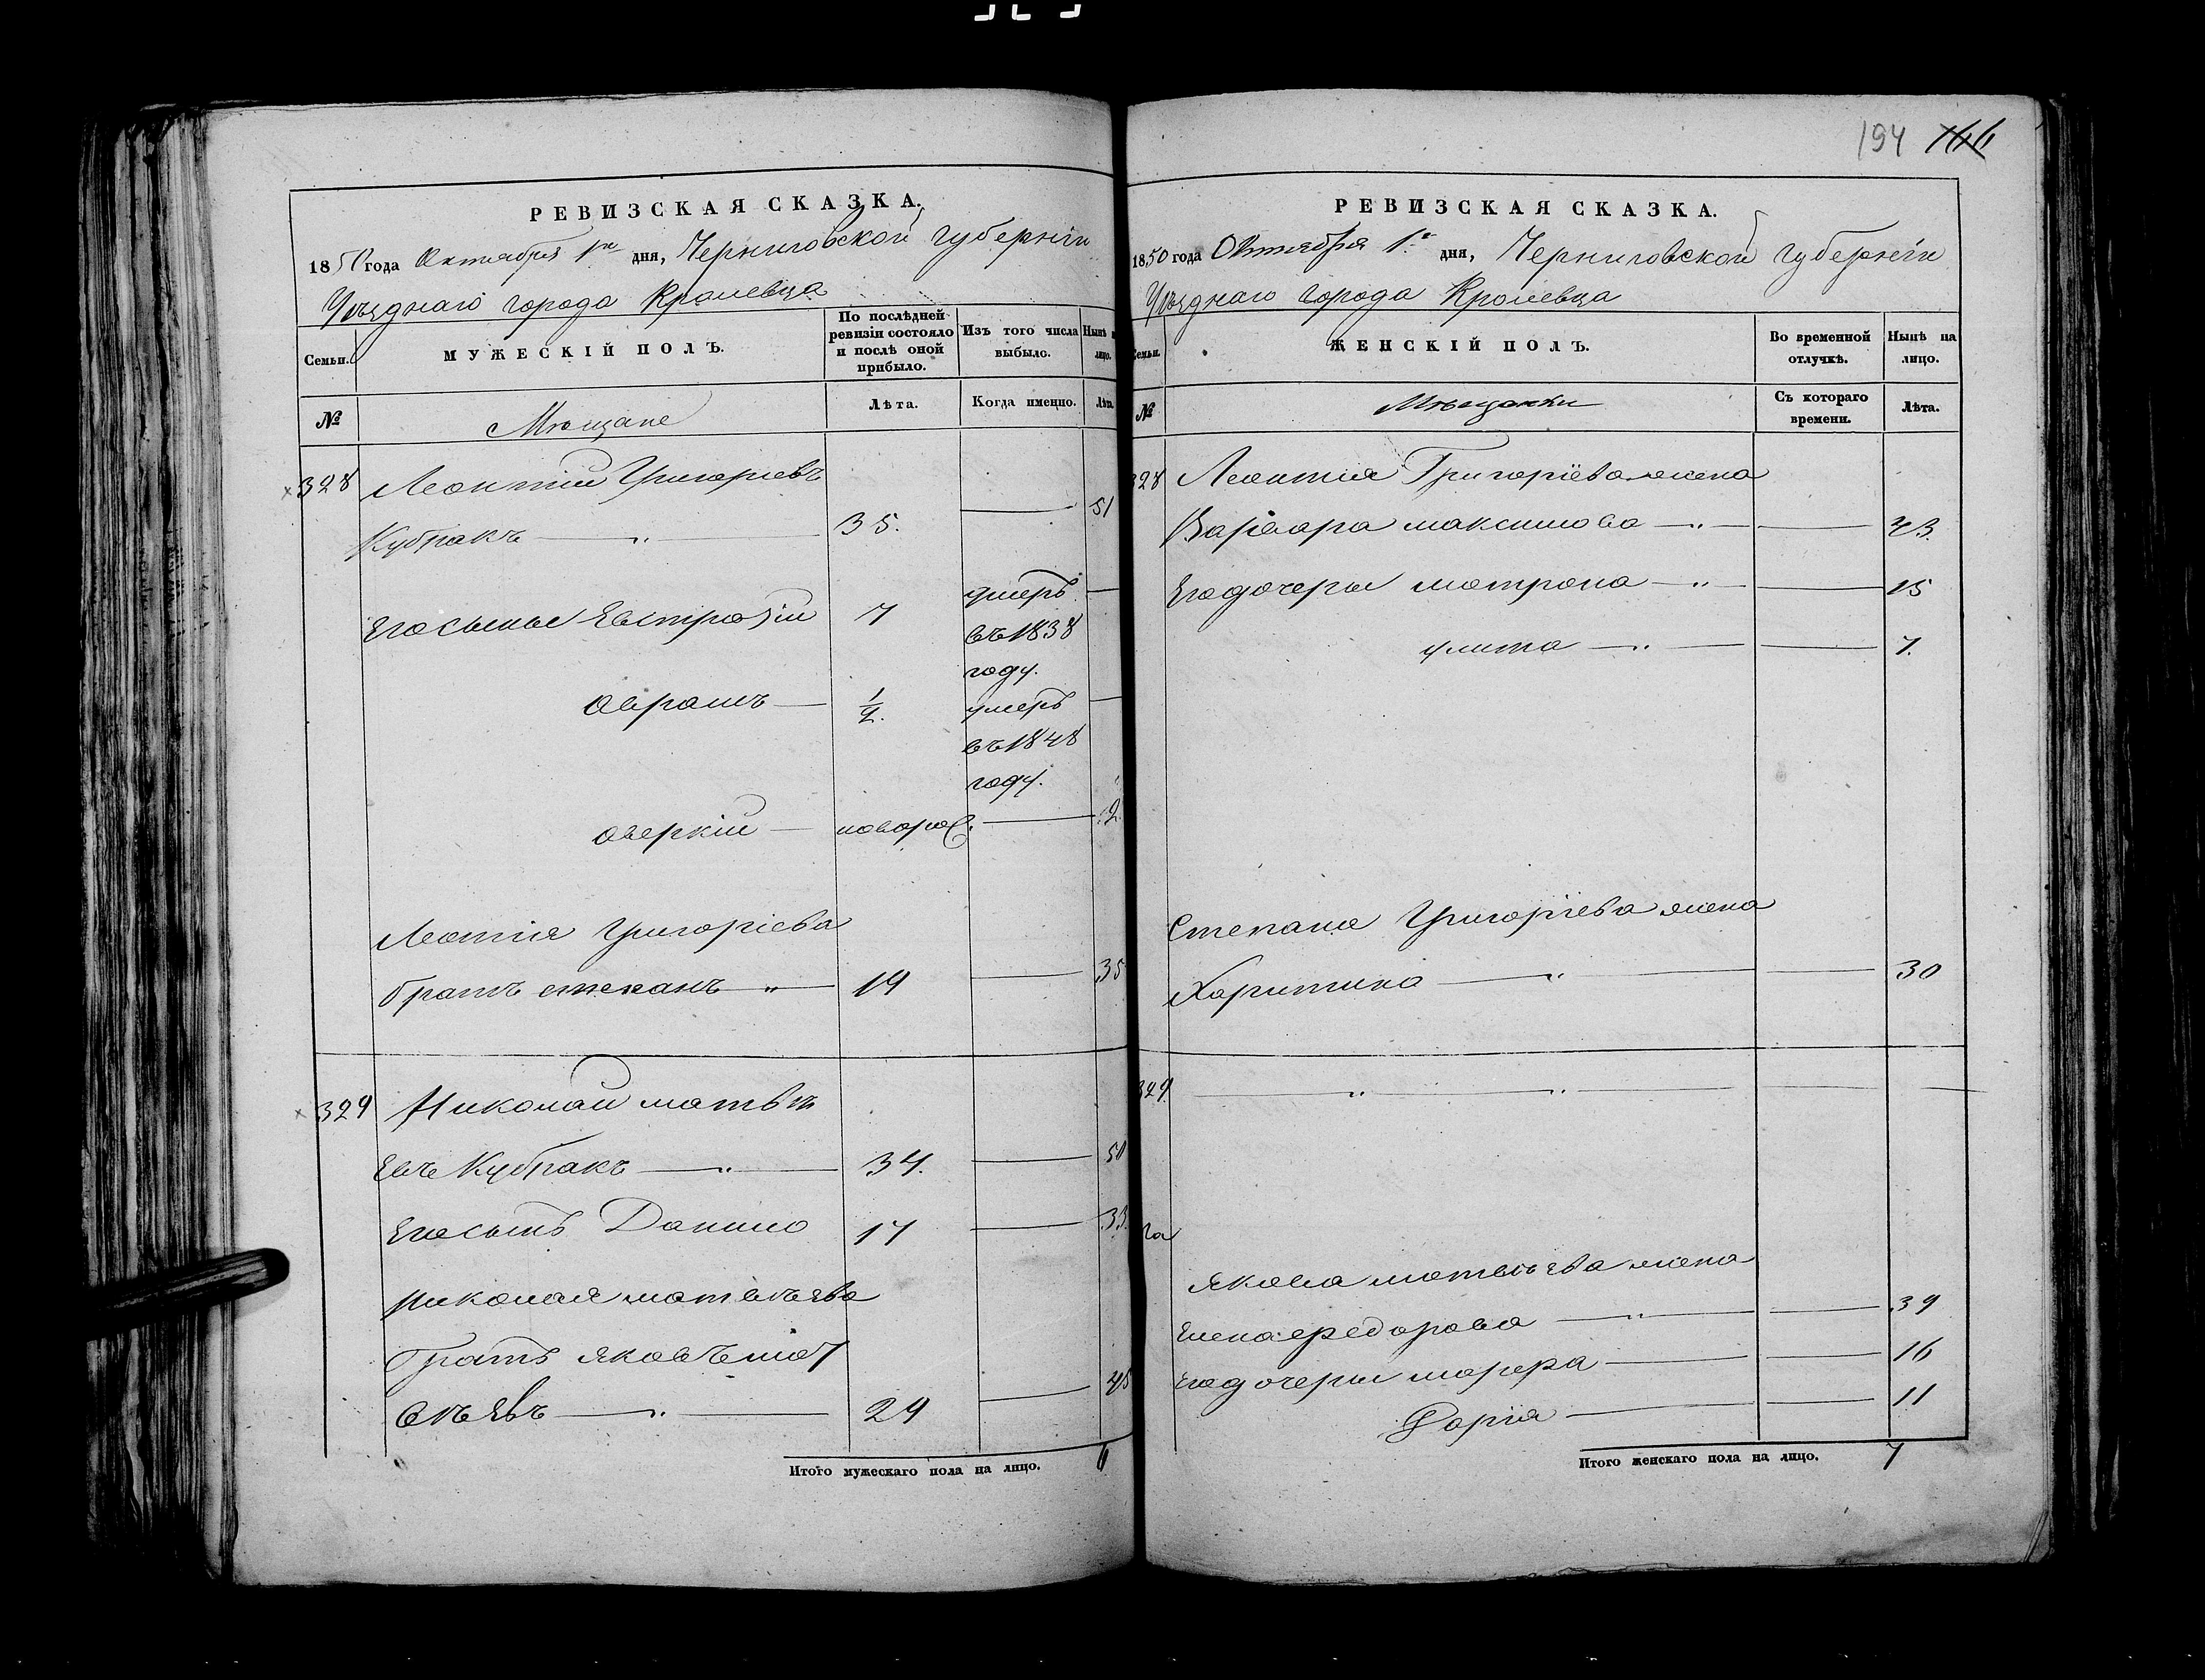 194 166
РЕВИЗСКАЯ СКАЗКА.
1850 года Октября 1го дня, Черниговской Губерніи
Уѣзднаго города Кролевца
Семьи. МУЖЕСКІЙ ПОЛЪ. По послѣдней ревизіи состояло и послѣ оной прибыло. Изъ того числа выбыло. Нынѣ лицо.
№ Мѣщане Лѣта. Когда именно. Лѣта.
328 Леонтій Григорьевъ
Кубракъ — „ — 35. — 51
умеръ —
Его сыновья Евстратій 7
въ 1838
году.
Аврамъ — 1/2. умеръ —
въ 1848
году.
Аверкій — новорож. — 2
Леонтія Григоріева
братъ Степанъ „ — 19 — 35
329 Николай Матвѣ
евъ Кубракъ — „ — 34. — 50
Его сынъ Данило 17 — 33.
Николая Матвѣева
братъ Яковъ Мат
вѣевъ — „ — 29 — 45
Итого мужескаго пола на лицо. 6
РЕВИЗСКАЯ СКАЗКА.
1850 года Октября 1го дня, Черниговской Губерніи
Уѣзднаго города Кролевца
Семьи. ЖЕНСКІЙ ПОЛЪ. Во временной отлучкѣ. Нынѣ на лицо.
№ Мѣщанки Съ котораго времени. Лѣта.
328 Леонтія Григоріева жена
Варвара Максимова — „ — — 43.
Его дочери Матрона — „ — — 15
Улита — „ — — 7.
Степана Григоріева жена
Харитина — „ — — 30
329. — „ — „ — — —
га
Якова Матвѣева жена
Елена Федорова — „ — — 39
Его дочери Марфа — — 16
Дарія — — 11
Итого женскаго пола на лицо. 7